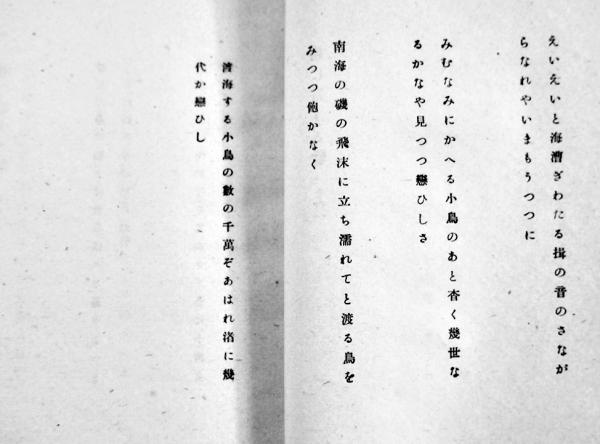 えいえいと海漕ぎわたる揖の音のさなが
らなれやいまもうつつに
みむなみにかへる小鳥のあと杳く幾世な
るかなや見つつ戀ひしさ
南海の磯の飛沫に立ち濡れてと渡る鳥を
みつつ飽かなく
渡海する小鳥の數の千萬ぞあはれ渚に幾
代か戀ひし